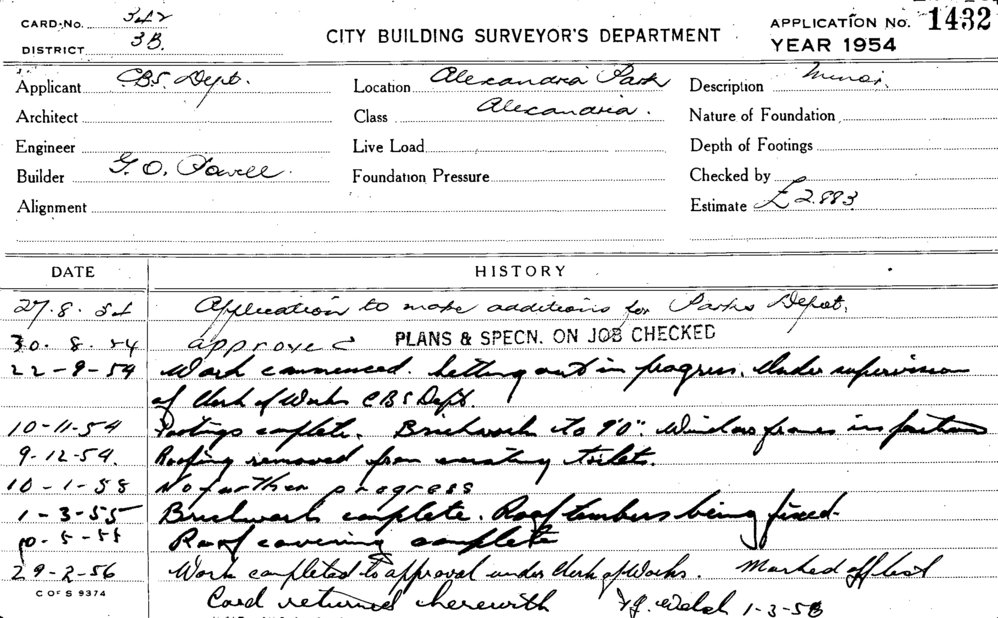 CARD No. 342
DISTRICT 3B.
CITY BUILDING SURVEYOR'S DEPARTMENT
APPLICATION No. 1432
YEAR 1954
Applicant C.B.S. Dept. Location Alexandria Park Description Minor.
Architect Class Alexandria. Nature of Foundation
Engineer Live Load Depth of Footings
Builder G. O. Powell. Foundation Pressure Checked by
Alignment Estimate £2.883
DATE HISTORY
27.8.54 Application to make additions for Parks Depot.
30.8.54 approved PLANS & SPECN. ON JOB CHECKED
22-9-54 Work commenced. Setting out in progress. Under supervision
of Clerk of Works C B S Dept.
10-11-54 Footings complete. Brickwork to 9'0". Window frames in position
9-12-54. Roofing removed from existing toilets.
10-1-55 No further progress
1-3-55 Brickwork complete. Roof timbers being fixed.
10-5-55 Roof covering complete
29-2-56 Work completed to approval under Clerk of Works. Marked off list
C OF S 9374
Card returned herewith Welsh 1-3-56